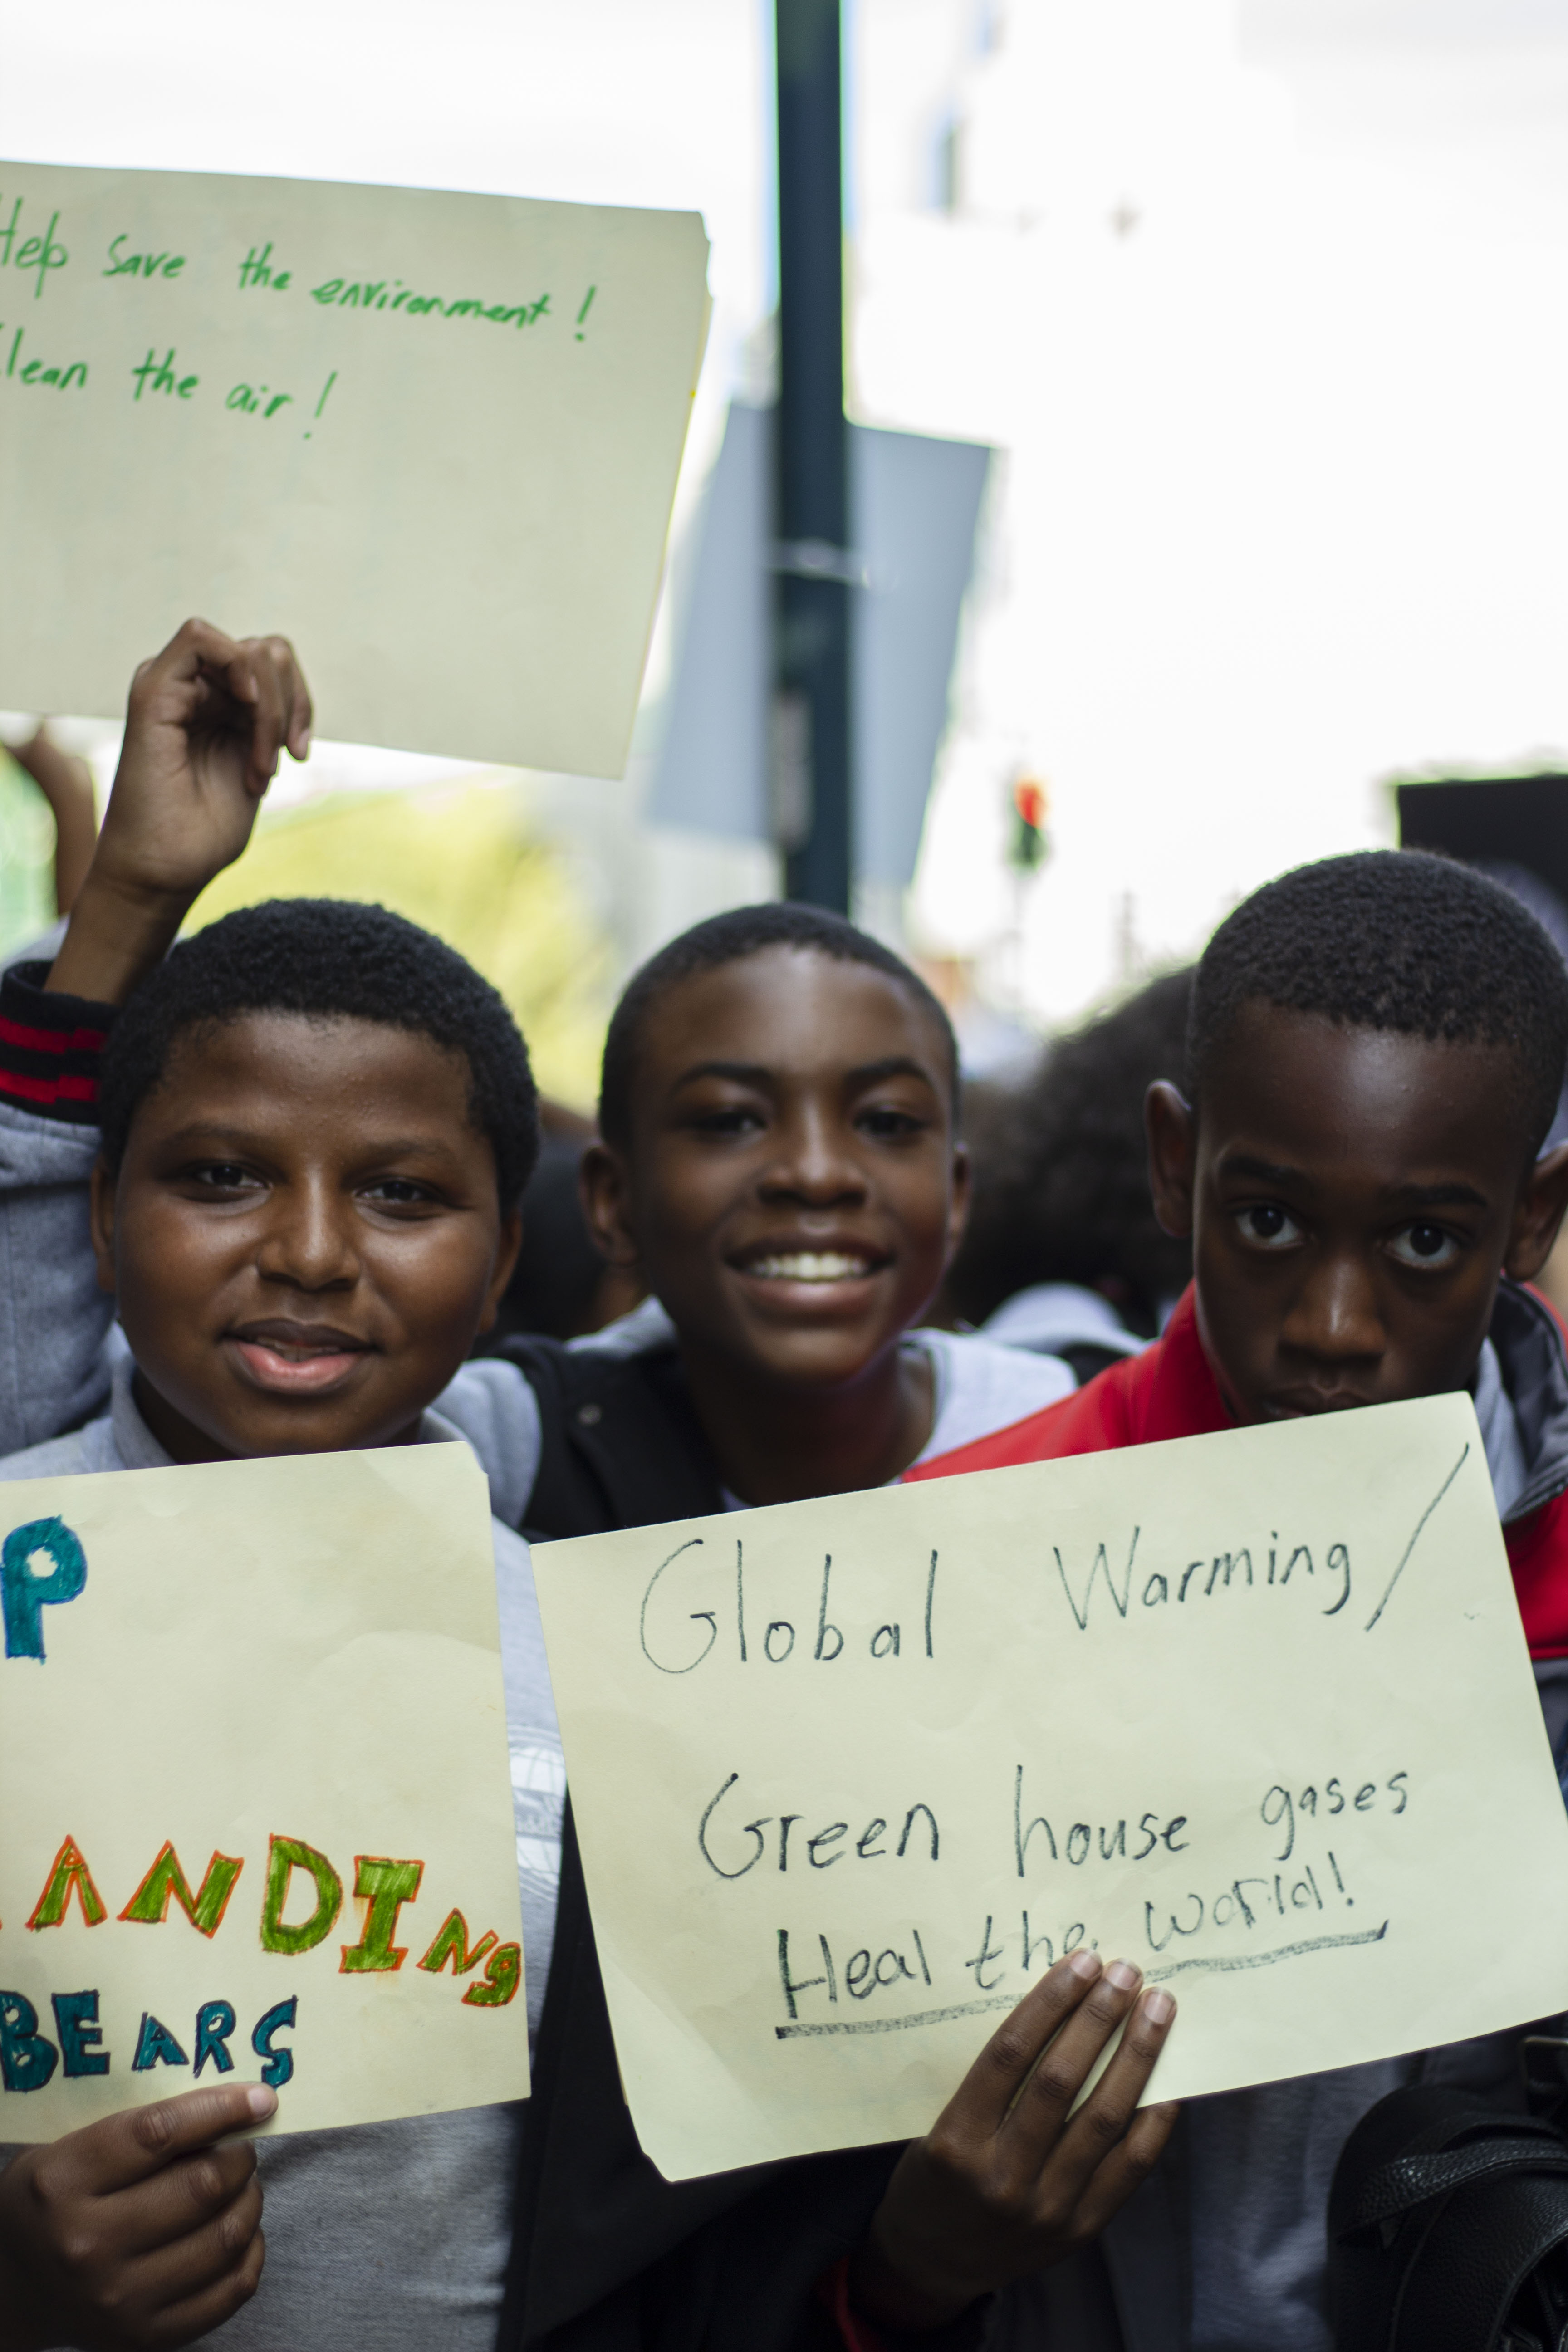 Help save the environment!
Clean the air!
P
ANDING
BEARS
Global Warming/
Green house gases
Heal the world!